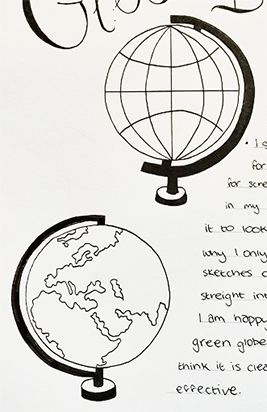 Glo
• I s
for
for scre
in my
it to look
why I only
sketches o
streight int
I am happ
green globe
think it is clea
effective.